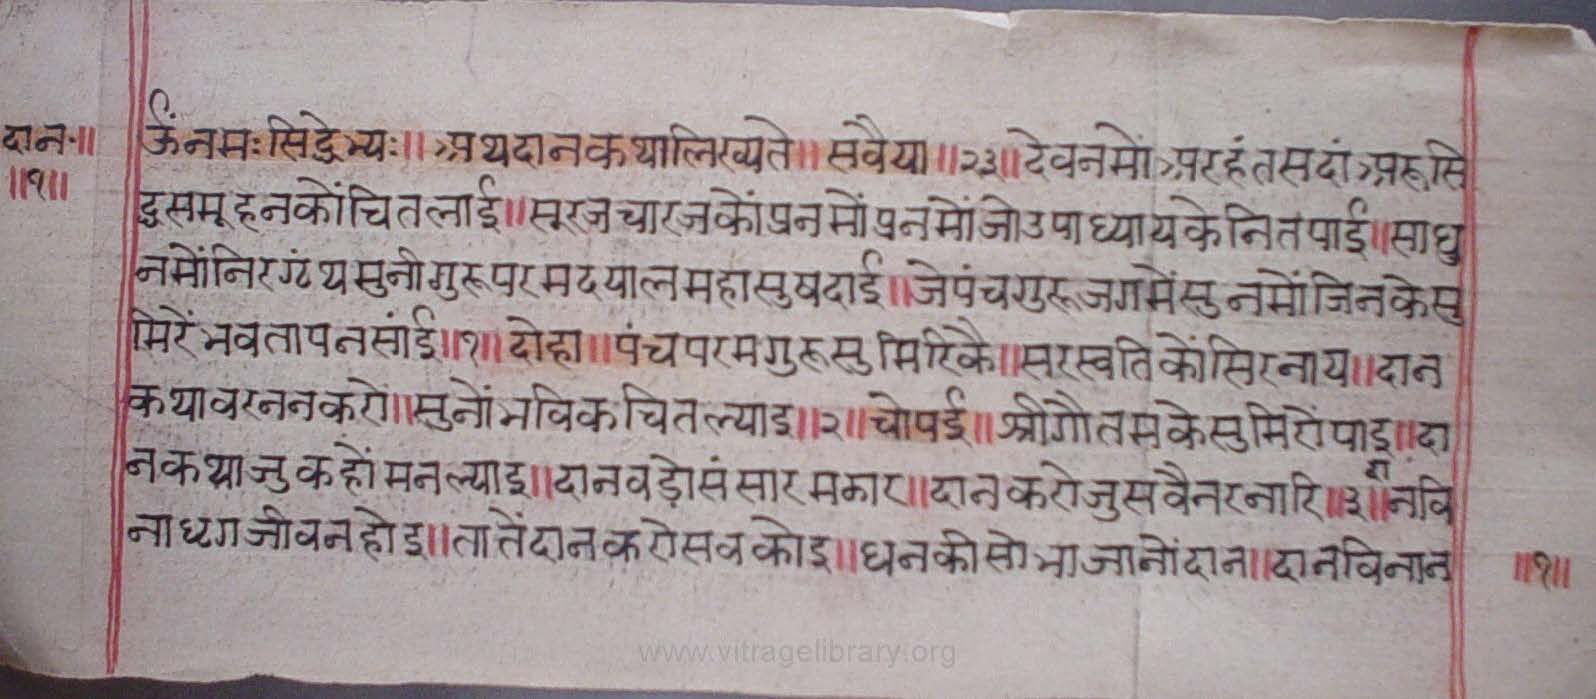 दान॰॥
॥१॥
ॐनमःसिद्धेभ्यः॥अथदानकथालिख्यते॥सवैया॥२३॥देवनमोंअरहंतसदांअरूसि
द्धसमूहनकोंचितलाई॥सूरजचारजकोंप्रनमोंप्रनमोंजोउपाध्यायकेनितपाई॥साधु
नमोंनिरग्रंथमुनीगुरूपरमदयालमहासुषदाई॥जेपंचगुरूजगमेंसुनमोंजिनकेसु
मिरेंभवतापनसांई॥१॥दोहा॥पंचपरमगुरूसुमिरिकै॥सरस्वतिकोंसिरनाय॥दान
कथावरननकरों॥सुनोंभविकचितल्याइ॥२॥चोपई॥श्रीगौतमकेसुमिरोंपाइ॥दा
नकथाजुकहोंमनल्याइ॥दानवडोसंसारमझार॥दानकरोजुसवैनरनारि॥३॥दानवि
नाध्रगजीवनहोइ॥तातेंदानकरोसवकोइ॥धनकीसोभाजानोंदान॥दानविनान
॥१॥
www.vitragelibrary.org